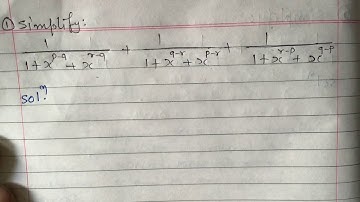 ① Simplify:
1/(1+x^(p-q)+x^(r-q)) + 1/(1+x^(q-r)+x^(p-r)) + 1/(1+x^(r-p)+x^(q-p))
solⁿ: